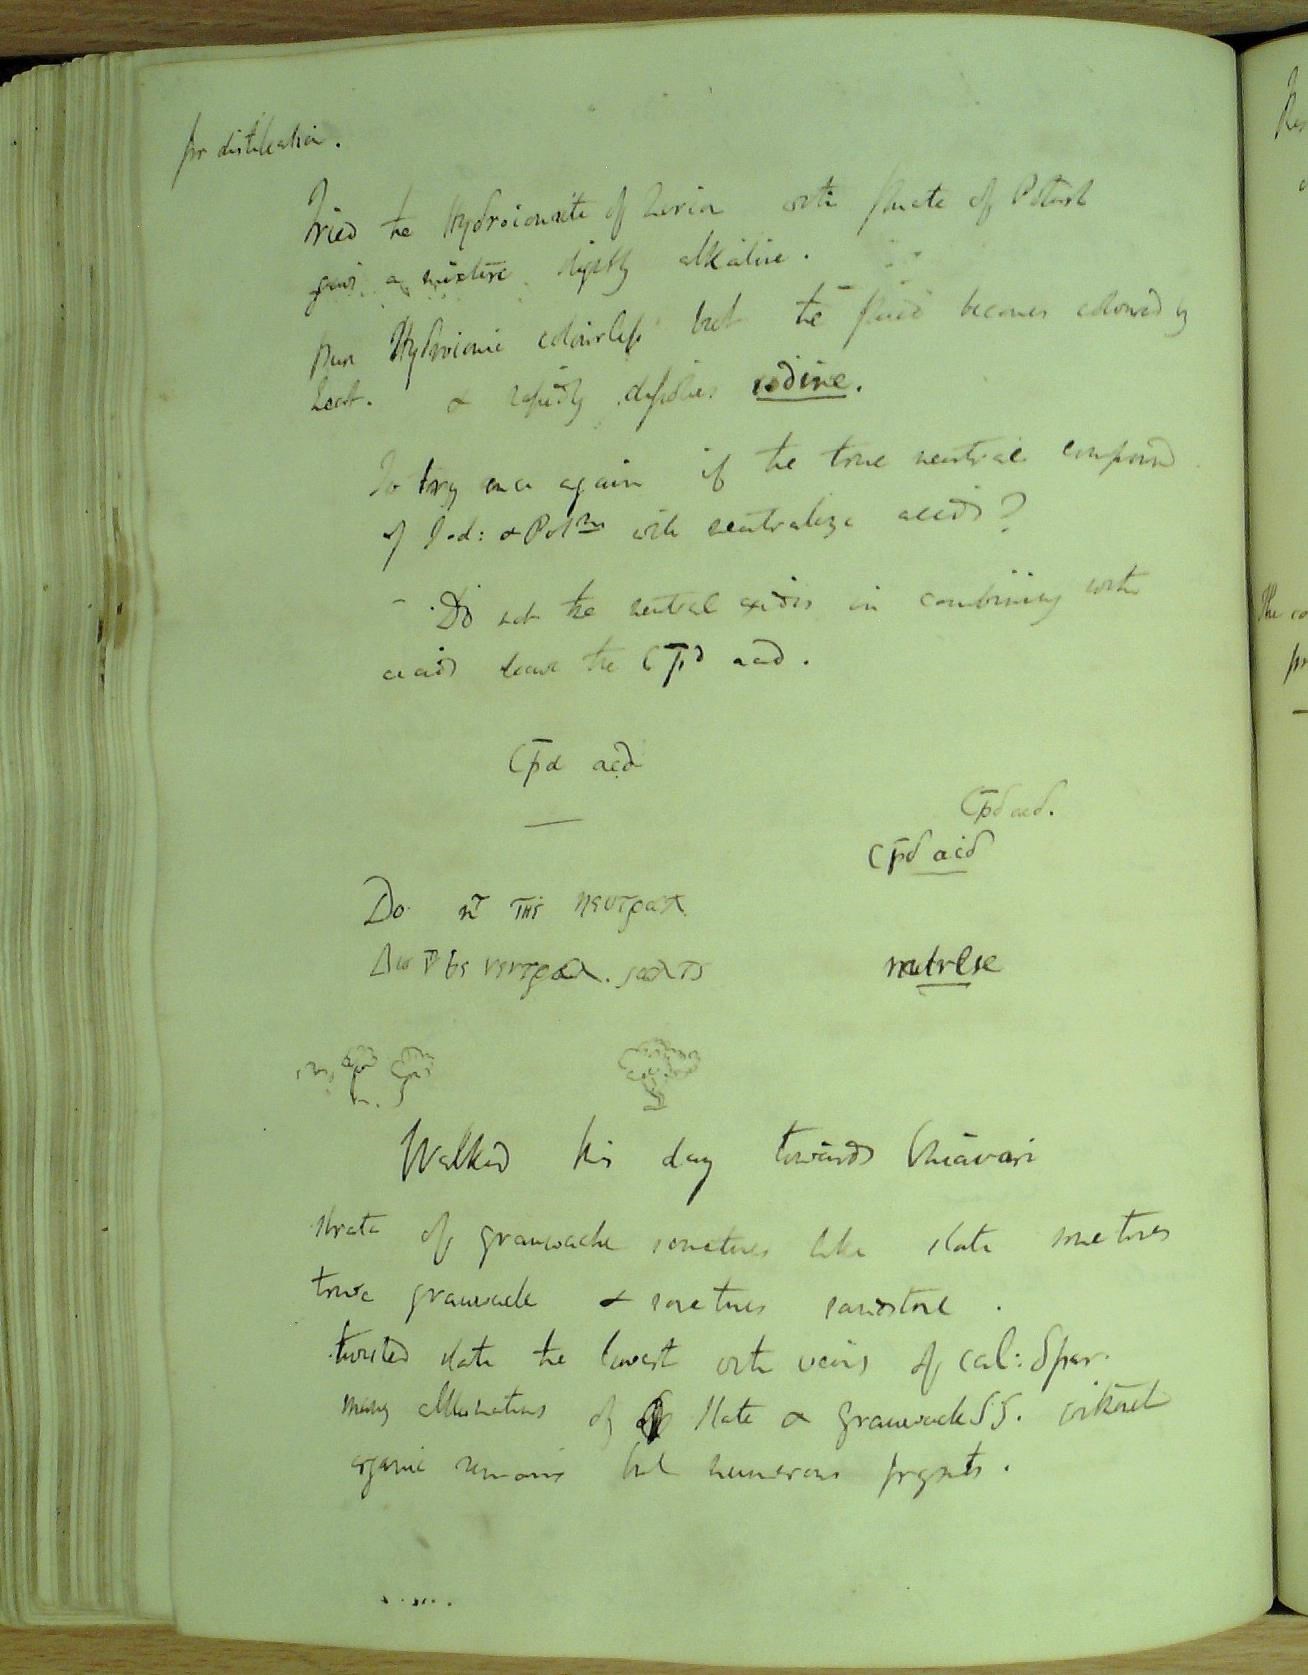 for distillation.
Tried the Hydroionate of with fluate of Potash
gave a mixture slightly alkaline.
pure Hydroionic colourless but the fluid becomes coloured by
heat. & rapidly dissolves iodine.
To try once again if the true neutral compound
of Iod: & Potm will neutralize acids?
- Do not the neutral oxides in combining with
acids leave the Cpd acd.
Cpd acd
Cpd acd.
Cpd acid
Do nt
Walked this day towards Chiavari
strata of grauwacke sometimes like slate sometimes
true grauwacke & sometimes sandstone.
twisted slate the lowest with veins of cal: Spar.
many alternations of slate & grauwacke SS. without
organic remains but numerous fragnts.